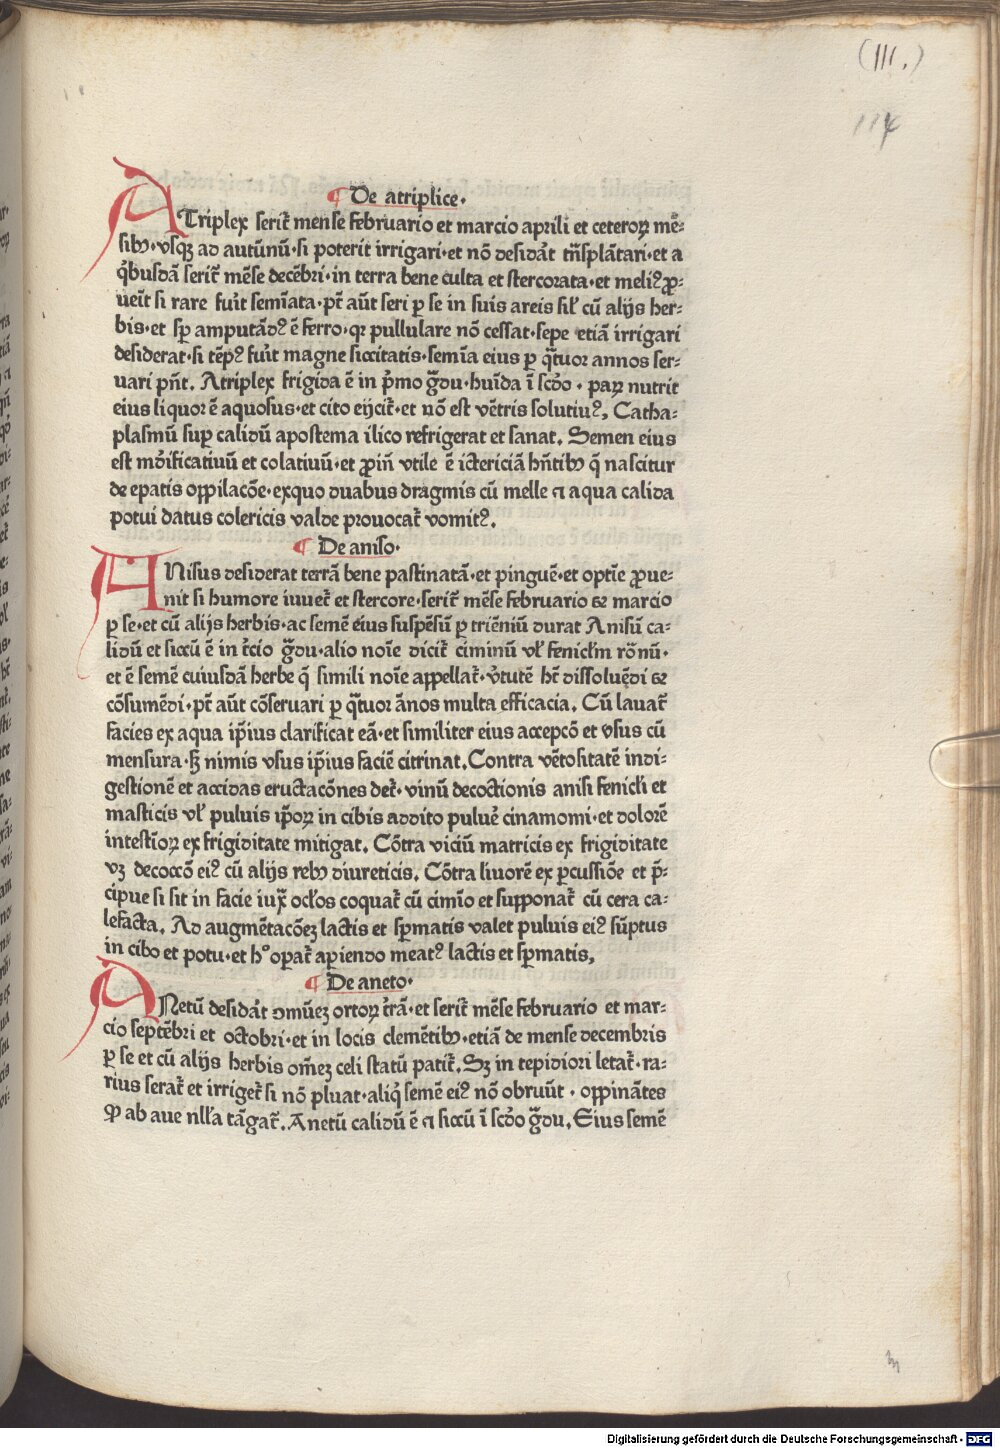 (III.)
114
¶ De atriplice·
ATriplex serit᷑ mense februario et marcio aprili et ceteroꝝ mē-
sibꝫ·vsqꝫ ad autūnū·si poterit irrigari·et nō desid᷑at tn̄splātari·et a
qͥbusdā serit᷑ mēse decēbri·in terra bene culta et stercorata·et meliꝰ ꝓ-
ueīt si rare fuīt semīata·pt᷑ aūt seri ꝑ se in suis areis sił cū alijs her-
bis·et sꝑ amputādꝰ ē ferro·qꝛ pullulare nō cessat·sepe etiā irrigari
desiderat·si tēpꝰ fuīt magne siccitatis·semīa eius ꝑ qͣtuor annos ser-
uari pn̄t. Atriplex frigida ē in pͥmo gͣdu·huīda ī scd̄o · paꝝ nutrit
eius liquor ē aquosus·et cito eijcit᷑·et nō est vētris solutiuꝰ, Catha-
plasmū suꝑ calidū apostema ilico refrigerat et sanat. Semen eius
est mōificatiuū et colatiuū·et ꝓin̄ vtile ē ictericiā hn̄tibꝫ q̄ nascitur
de epatis oppilacōe·exquo duabus dragmis cū melle ⁊ aqua calida
potui datus colericis valde prouocat᷑ vomitꝰ.
¶ De aniso·
ANisus desiderat terrā bene pastinatā·et pinguē·et optīe ꝓue-
nit si humore iuuet᷑ et stercore·serit᷑ mēse februario ⁊ marcio
ꝑ se·et cū alijs herbis·ac semē eius suspēsū ꝑ triēniū durat Anisū ca-
lidū et siccū ē in t᷑cio gͣdu·alio noīe dicit᷑ ciminū vł fenicłm rōnū·
et ē semē cuiusdā herbe q̄ simili noīe appellat᷑·v᷑tutē ht᷑ dissoluēdi ⁊
cōsumēdi·pt᷑ aūt cōseruari ꝑ qͣtuor ānos multa efficacia. Cū lauat᷑
facies ex aqua ip̄ius clarificat eā·et similiter eius accepcō et vsus cū
mensura·sꝫ nimis vsus ip̄ius faciē citrinat. Contra vētositatē indi-
gestionē et accidas eructacōnes det᷑· vinū decoctionis anisi feniclī et
masticis vł puluis ip̄oꝝ in cibis addito puluē cinamomi·et dolorē
intestīoꝝ ex frigiditate mitigat. Cōtra viciū matricis ex frigiditate
vꝫ decoccō eiꝰ cū alijs rebꝫ diureticis. Cōtra liuorē ex ꝑcussiōe et p̄-
cipue si sit in facie iux᷑ ocłos coquat᷑ cū cimīo et supponat᷑ cū cera ca-
lefacta. Ad augmētacōeꝫ lactis et sꝑmatis valet puluis eiꝰ sūptus
in cibo et potu·et hͦ oꝑat᷑ aꝑiendo meatꝰ lactis et sꝑmatis,
¶ De aneto·
ANetū desid᷑at ꝯmūeꝫ ortoꝝ t᷑rā·et serit᷑ mēse februario et mar-
cio septēbri et octobri·et in locis clemētibꝫ·etiā de mense decembris
ꝑ se et cū alijs herbis om̄eꝫ celi statū patit᷑. Sꝫ in tepidiori letat᷑·ra-
rius serat᷑ et irriget᷑ si nō pluat·aliqͥ semē eiꝰ nō obruūt · oppināntes
ꝙ ab aue nłła tāgat᷑. Anetū calidū ē ⁊ siccū ī scd̄o gͣdu. Eius semē
Digitalisierung gefördert durch die Deutsche Forschungsgemeinschaft - DFG